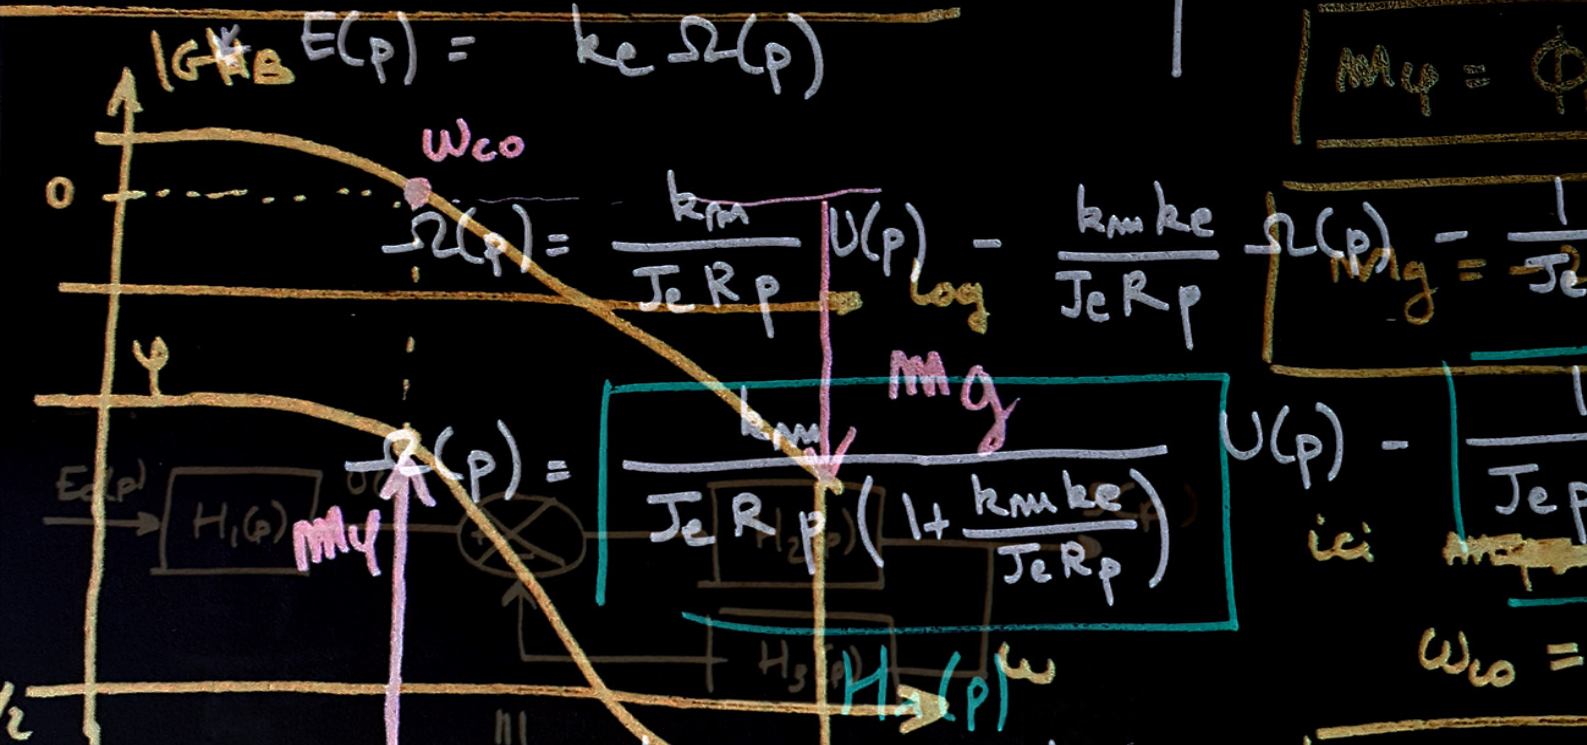 E(p) = ke Ω(p)
mφ = Φ
ωco
0
Ω(p) = km / Je R p U(p) - km ke / Je R p Ω(p) - 1 / Je
mg =
log
φ
mg
Ω(p) = km / Je R p (1 + km ke / Je R p) U(p) - 1 / Je p
H1(p)
mφ
H2(p)
ici
H3(p)
(p)
ω
ωco =
/2